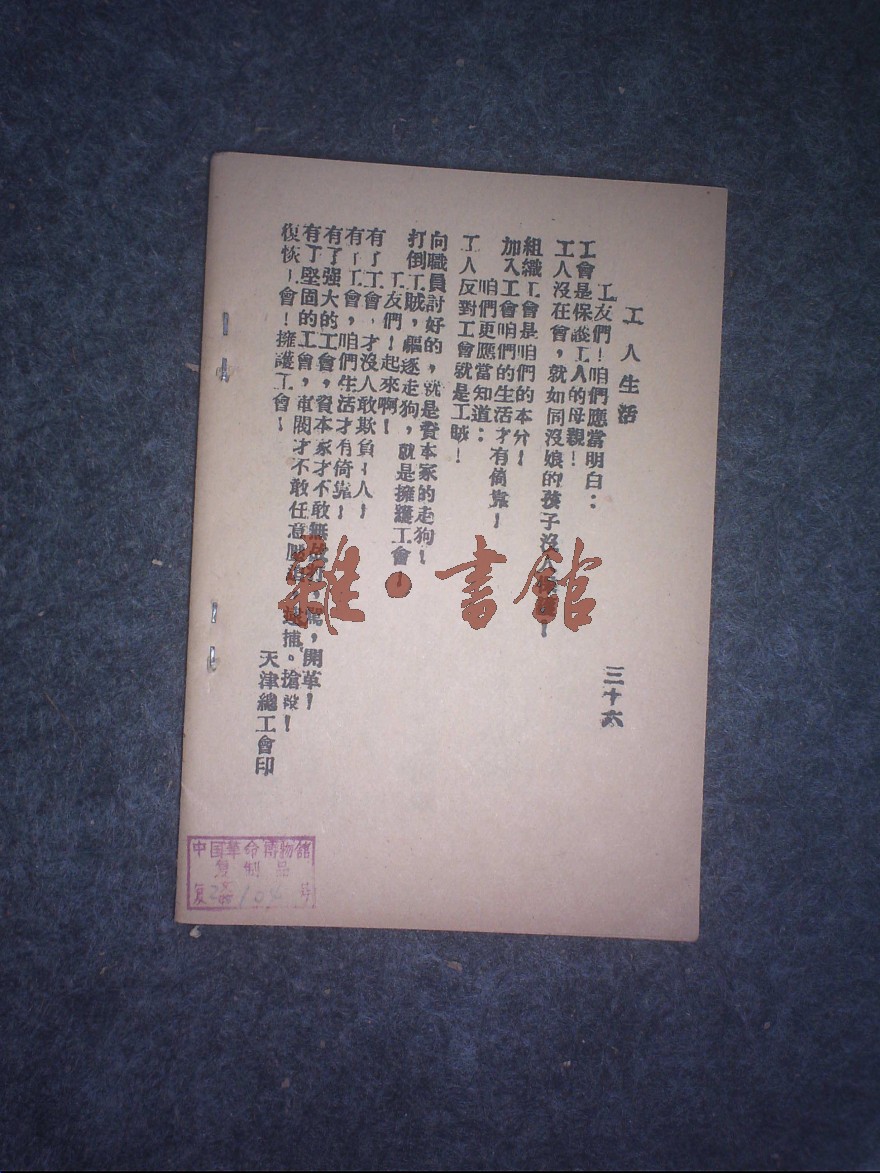 工人生活
三十六
工友們！咱們應當明白：
工會是保護工人的母親！
工人沒在會，就如同沒娘的孩子沒人
組織工會是咱們的本分！
加入工會咱們的生活才有倚靠！
咱們更應當知道：
工人反對工會就是工賊！
向職員討好的，就是資本家的走狗！
打倒工賊，驅逐走狗，就是擁護工會！
工友們！起來啊！
有了工會，才沒人敢欺負工人！
有了工會，咱們生活才有倚靠！
有了强大的工會，資本家才不敢無故打，罵，開革！
有了堅固的工會，軍閥才不敢任意壓 逮捕。搶
復恢工會！擁護工會！
天津總工會印
雜·書館
中国革命博物館
复制品
复 104 号